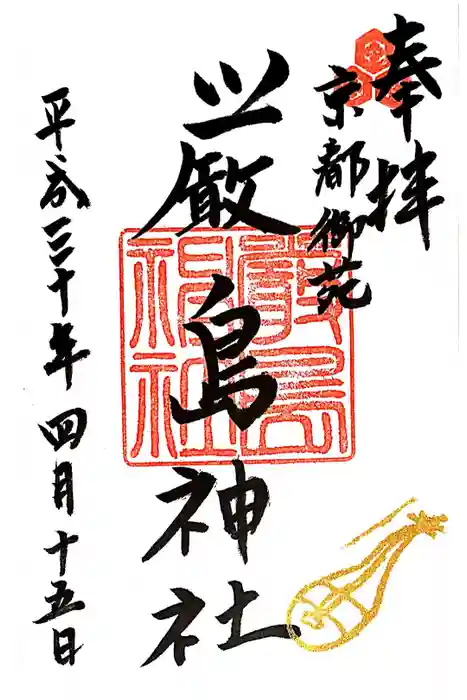 奉拝
京都御苑
厳島神社
嚴島神社
平成三十年四月十五日